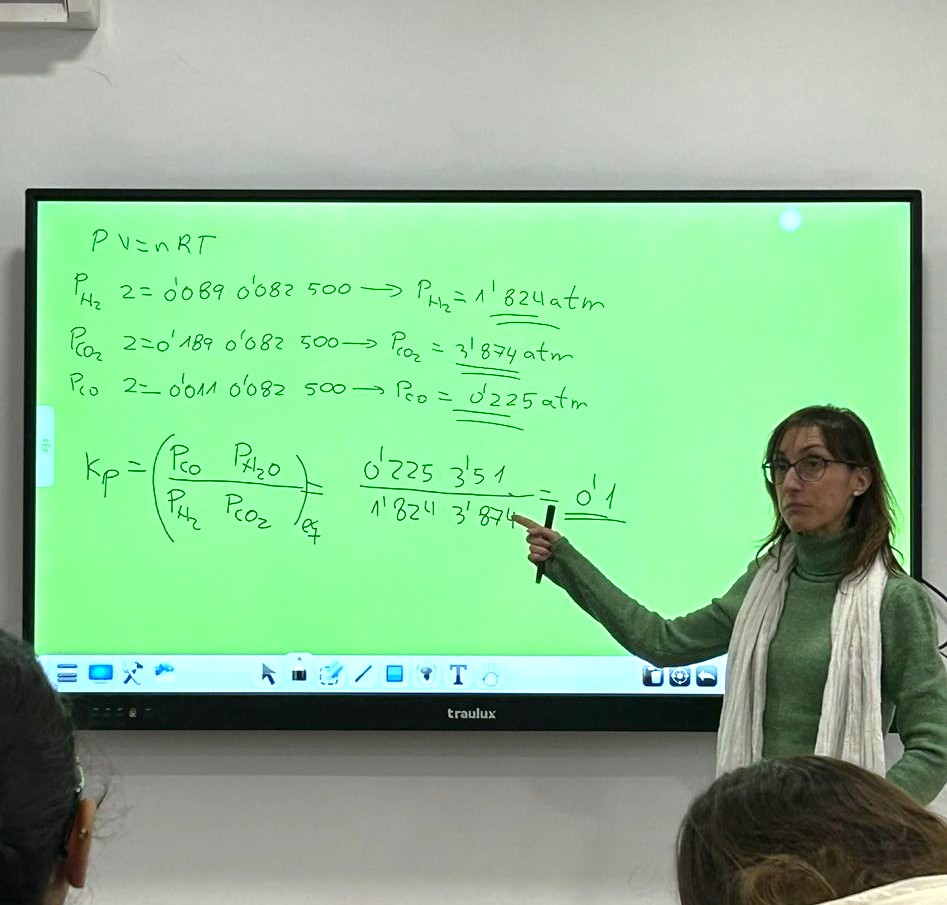 PV=nRT
P_H₂ 2= 0'089 0'082 500 → P_H₂ = 1'824 atm
P_CO₂ 2=0'189 0'082 500 → P_CO₂ = 3'874 atm
P_CO 2= 0'011 0'082 500 → P_CO = 0'225 atm
Kp = (P_CO P_H₂O / P_H₂ P_CO₂)eq = 0'225 3'51 / 1'824 3'874 = 0'1
T
traulux